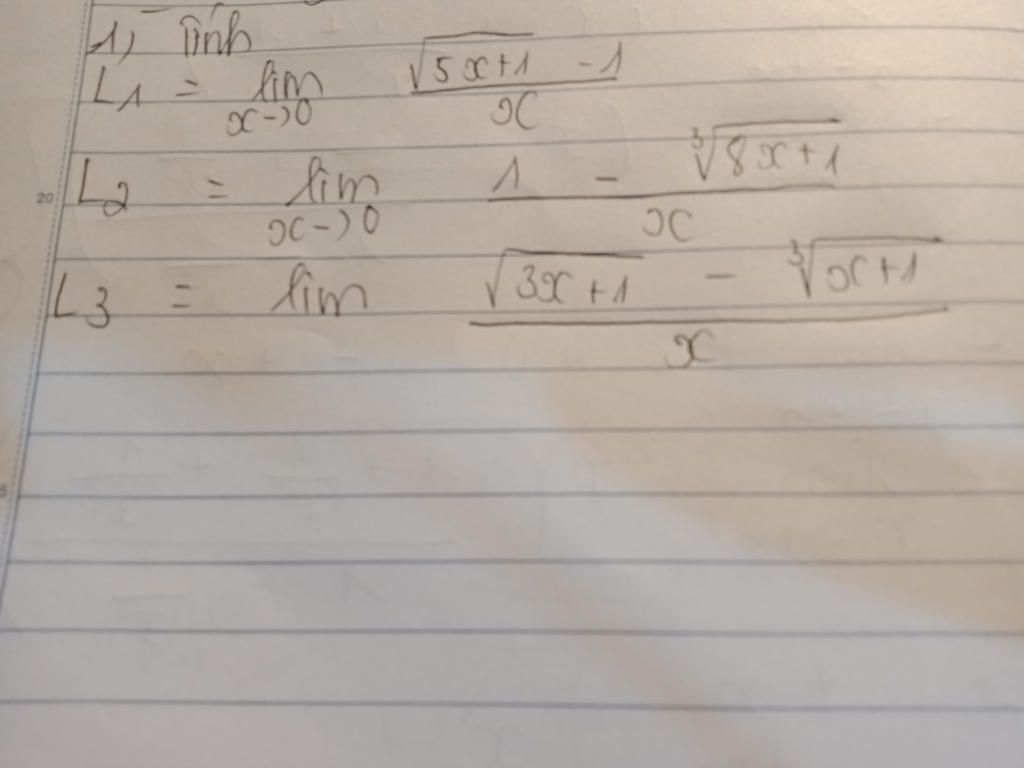 1) Tính
L1 = lim x->0 (√(5x+1) - 1)/x
L2 = lim x->0 (1 - ∛(8x+1))/x
L3 = lim (√(3x+1) - ∛(x+1))/x
20